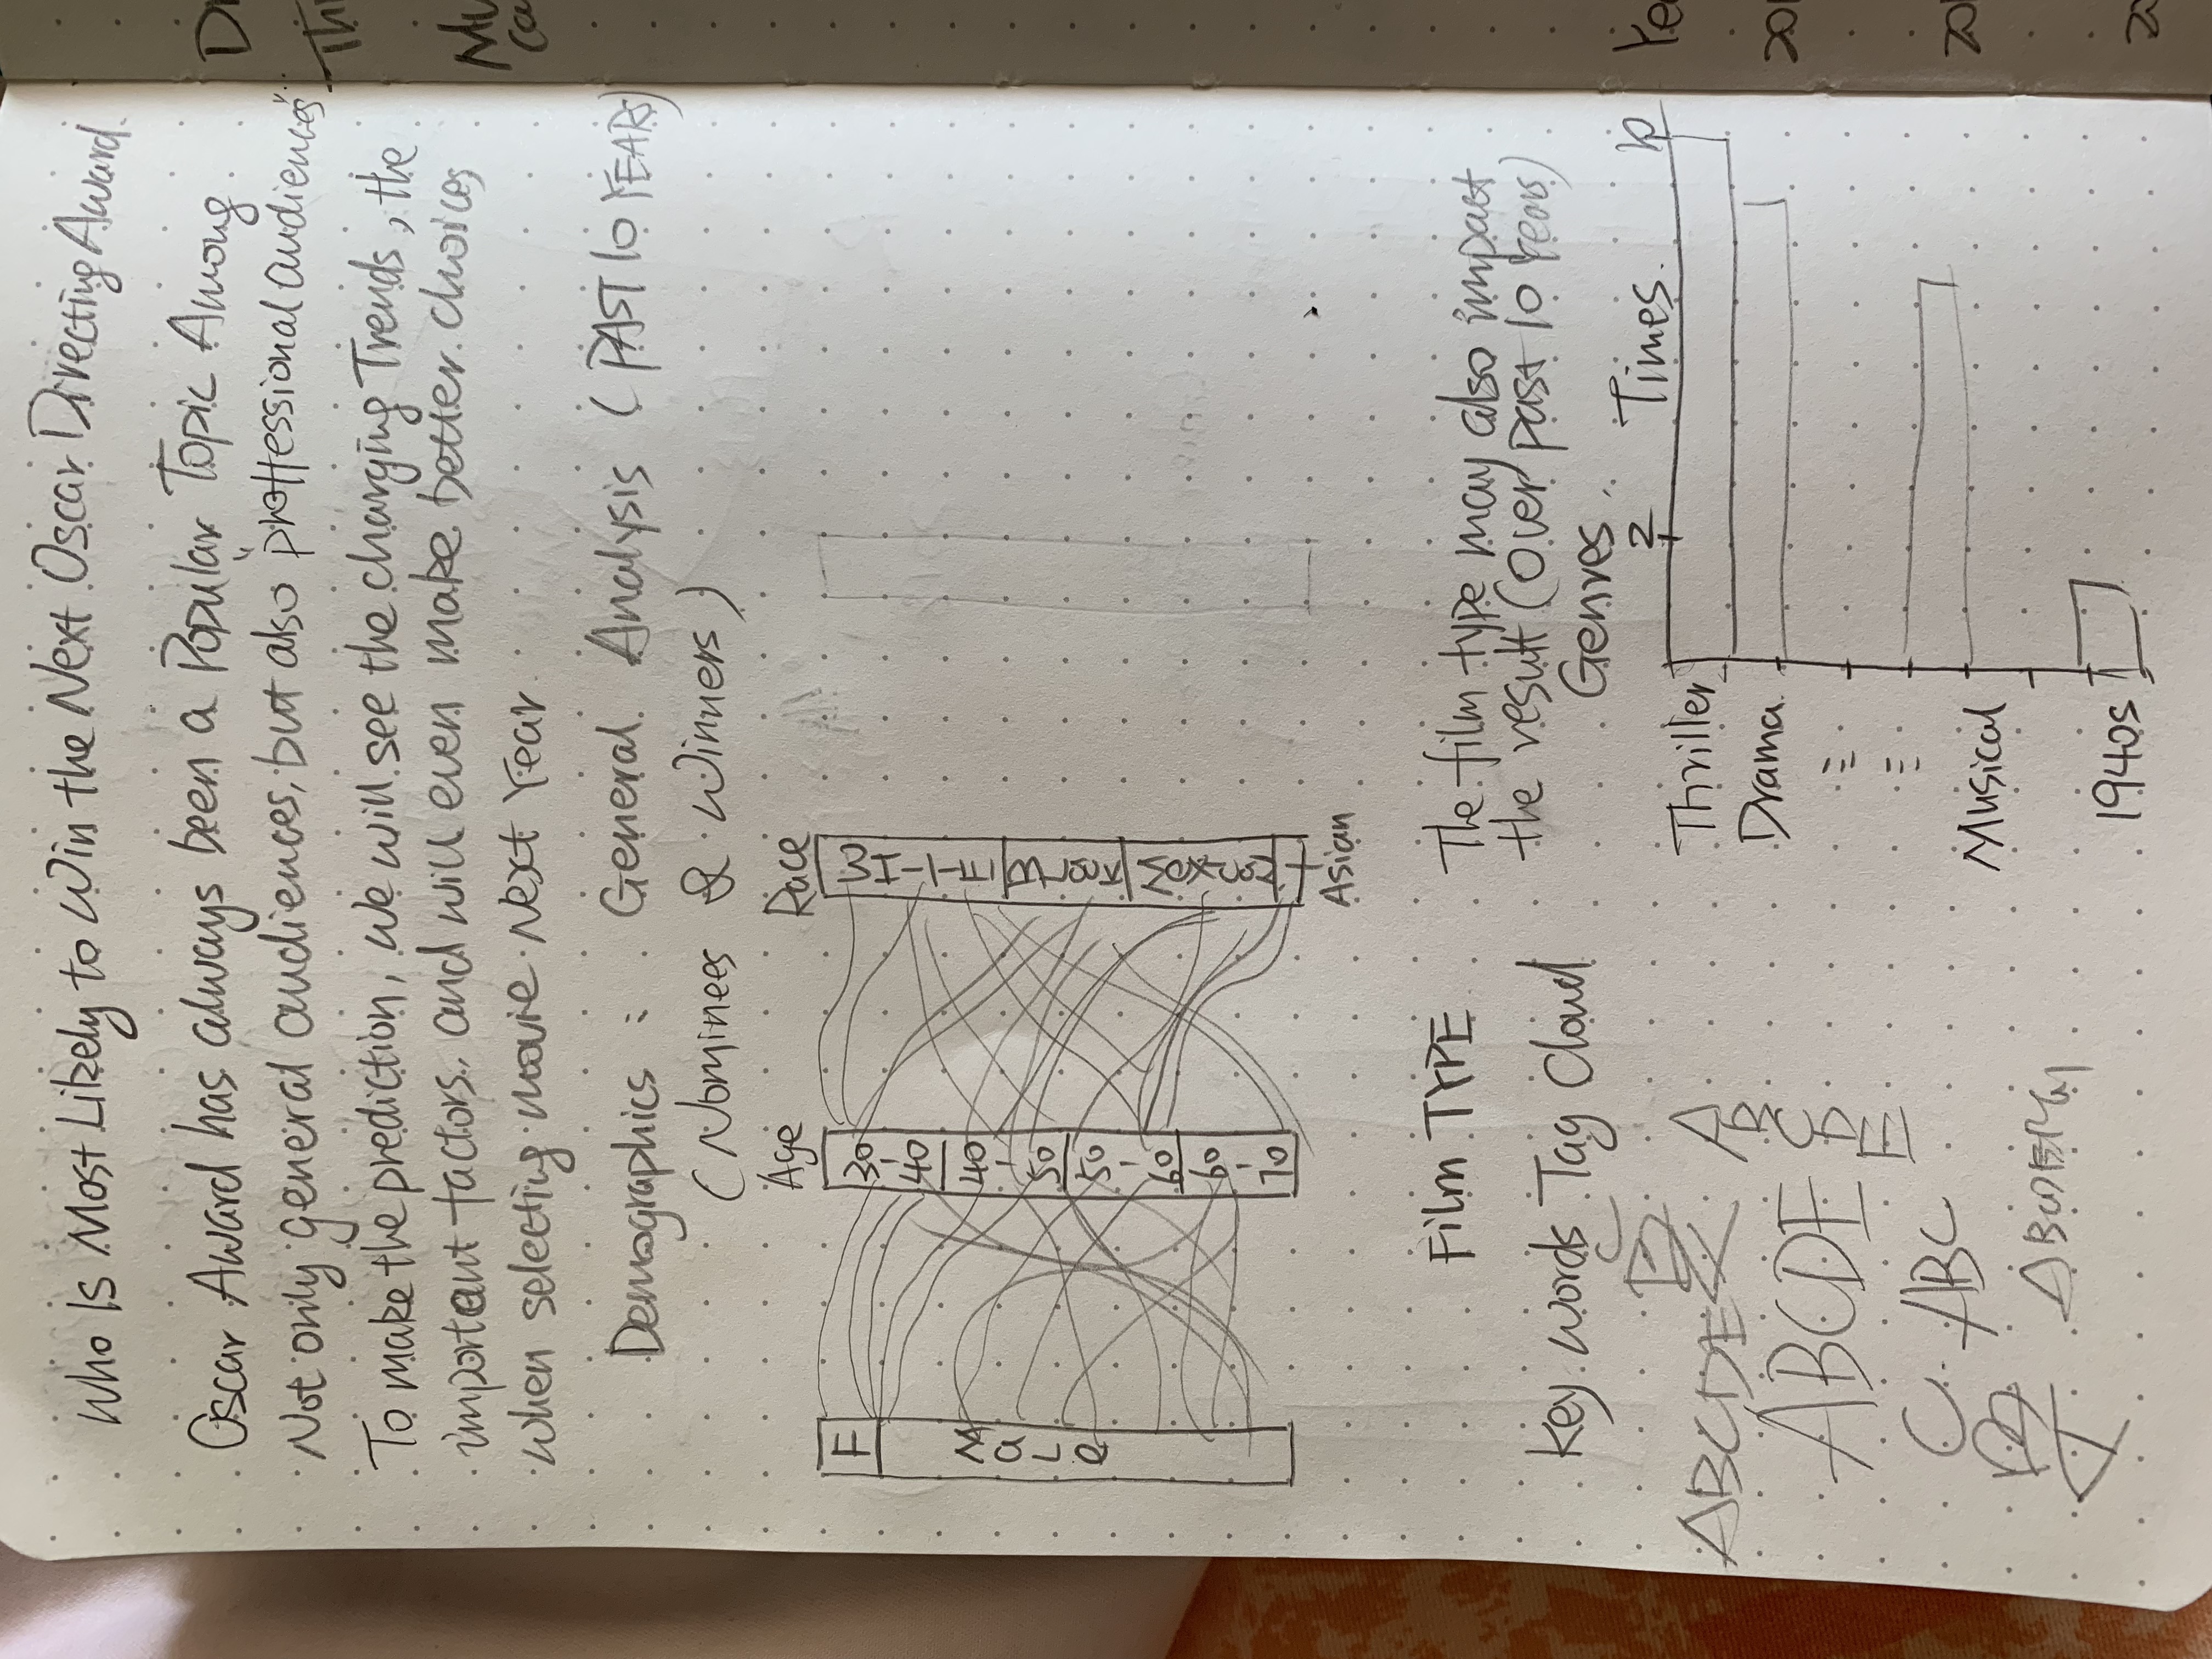 Who Is Most Likely to Win the Next Oscar Directing Award.
Oscar Award has always been a Popular Topic Among
Not only general audiences, but also "proffessional audiences"
To make the prediction, we will see the changing Trends, the
important factors, and will even make better choices
when selecting movie Next Year
Demographics : General Analysis (PAST 10 YEARS)
(Nominees & Winners)
Age
Race
F
Male
30-40
40-50
50-60
60-70
WHITE
Black
Asian
Film TYPE
The film type may also impact
the result (Over past 10 Years)
Key words Tag Cloud
Genres
2 Times. 10
Thriller
Drama
Musical
1940s
ABCDE
ABCDE
ABCDE
ABC
ABC
Di
Thi
Mu
Ye
201
201
20